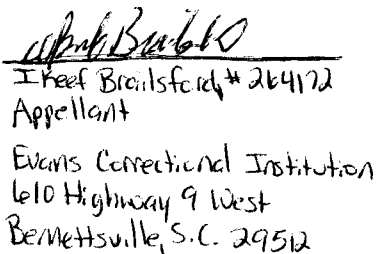 I Keef Brailsford, # 264172
Appellant
Evans Correctional Institution
610 Highway 9 West
Bennettsville, S.C. 29512